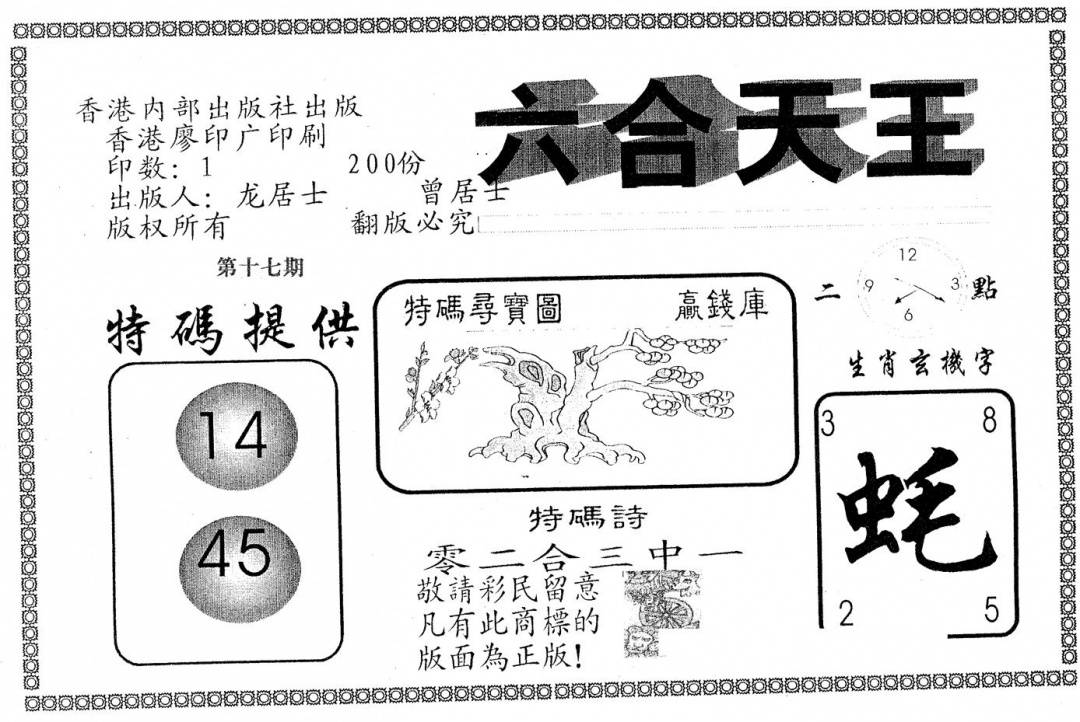 六合天王
香港内部出版社出版
香港廖印广印刷
印数: 1 200份
出版人: 龙居士 曾居士
版权所有 翻版必究
第十七期
特碼提供
14
45
特碼尋寶圖 贏錢庫
特碼詩
零二合三中一
敬請彩民留意
凡有此商標的
版面為正版!
二 點
12
9 3
6
生肖玄機字
3 8
蚝
2 5